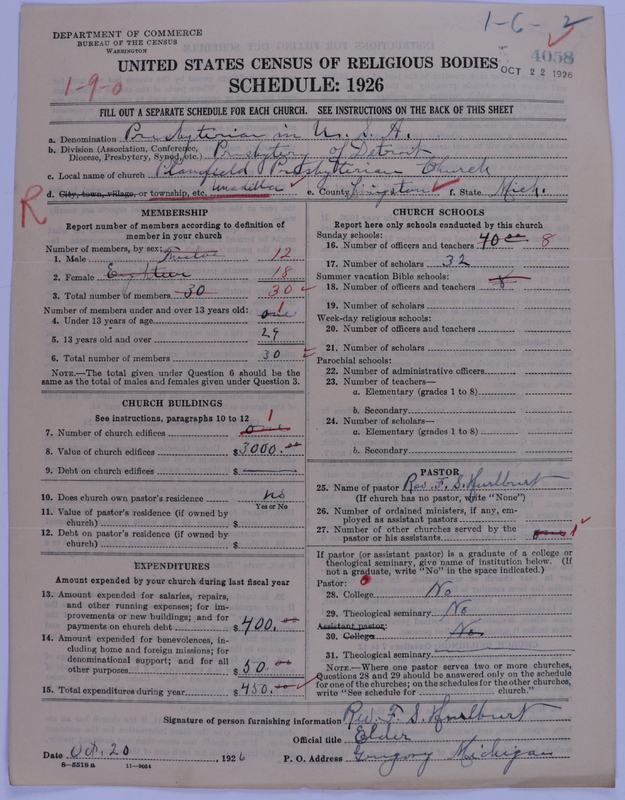 1-6-2
DEPARTMENT OF COMMERCE
BUREAU OF THE CENSUS
WASHINGTON
4058
OCT 22 1926
1-9-0
UNITED STATES CENSUS OF RELIGIOUS BODIES
SCHEDULE: 1926
FILL OUT A SEPARATE SCHEDULE FOR EACH CHURCH. SEE INSTRUCTIONS ON THE BACK OF THIS SHEET
a. Denomination Presbyterian in U. S. A.
b. Division (Association, Conference, Diocese, Presbytery, Synod, etc.) Presbytery of Detroit
c. Local name of church Plainfield Presbyterian Church
d. City, town, village, or township, etc. Unadilla e. County Livingston f. State Mich.
R
MEMBERSHIP
Report number of members according to definition of
member in your church
Number of members, by sex:
1. Male 12
2. Female Eighteen 18
3. Total number of members 30 30
Number of members under and over 13 years old:
4. Under 13 years of age one 1
5. 13 years old and over 29
6. Total number of members 30
NOTE.—The total given under Question 6 should be
same as the total of males and females given under Question 3.
CHURCH BUILDINGS
See instructions, paragraphs 10 to 12
7. Number of church edifices one 1
8. Value of church edifices $3000.00
9. Debt on church edifices $
10. Does church own pastor's residence no
Yes or No
11. Value of pastor's residence (if owned by
church) $
12. Debt on pastor's residence (if owned by
church) $
EXPENDITURES
Amount expended by your church during last fiscal year
13. Amount expended for salaries, repairs,
and other running expenses; for im-
provements or new buildings; and for
payments on church debt $400.00
14. Amount expended for benevolences, in-
cluding home and foreign missions; for
denominational support; and for all
other purposes $50.00
15. Total expenditures during year $450.00
CHURCH SCHOOLS
Report here only schools conducted by this church
Sunday schools:
16. Number of officers and teachers 8
17. Number of scholars 32
Summer vacation Bible schools:
18. Number of officers and teachers 8
19. Number of scholars
Week-day religious schools:
20. Number of officers and teachers
21. Number of scholars
Parochial schools:
22. Number of administrative officers
23. Number of teachers—
a. Elementary (grades 1 to 8)
b. Secondary
24. Number of scholars—
a. Elementary (grades 1 to 8)
b. Secondary
PASTOR
25. Name of pastor Rev. F. S. Hurlburt
(If church has no pastor, write "None")
26. Number of ordained ministers, if any, em-
ployed as assistant pastors
27. Number of other churches served by the
pastor or his assistants 1
If pastor (or assistant pastor) is a graduate of a college or
theological seminary, give name of institution below. (If
not a graduate, write "No" in the space indicated.)
Pastor:
28. College No
29. Theological seminary No
Assistant pastor:
30. College No
31. Theological seminary
NOTE.—Where one pastor serves two or more churches,
Questions 28 and 29 should be answered only on the schedule
for one of the churches; on the schedules for the other churches,
write "See schedule for church."
Signature of person furnishing information Rev. F. S. Hurlburt
Official title Elder
Date Oct. 20 1926 P. O. Address Gregory Michigan
8-5518a 11-9054